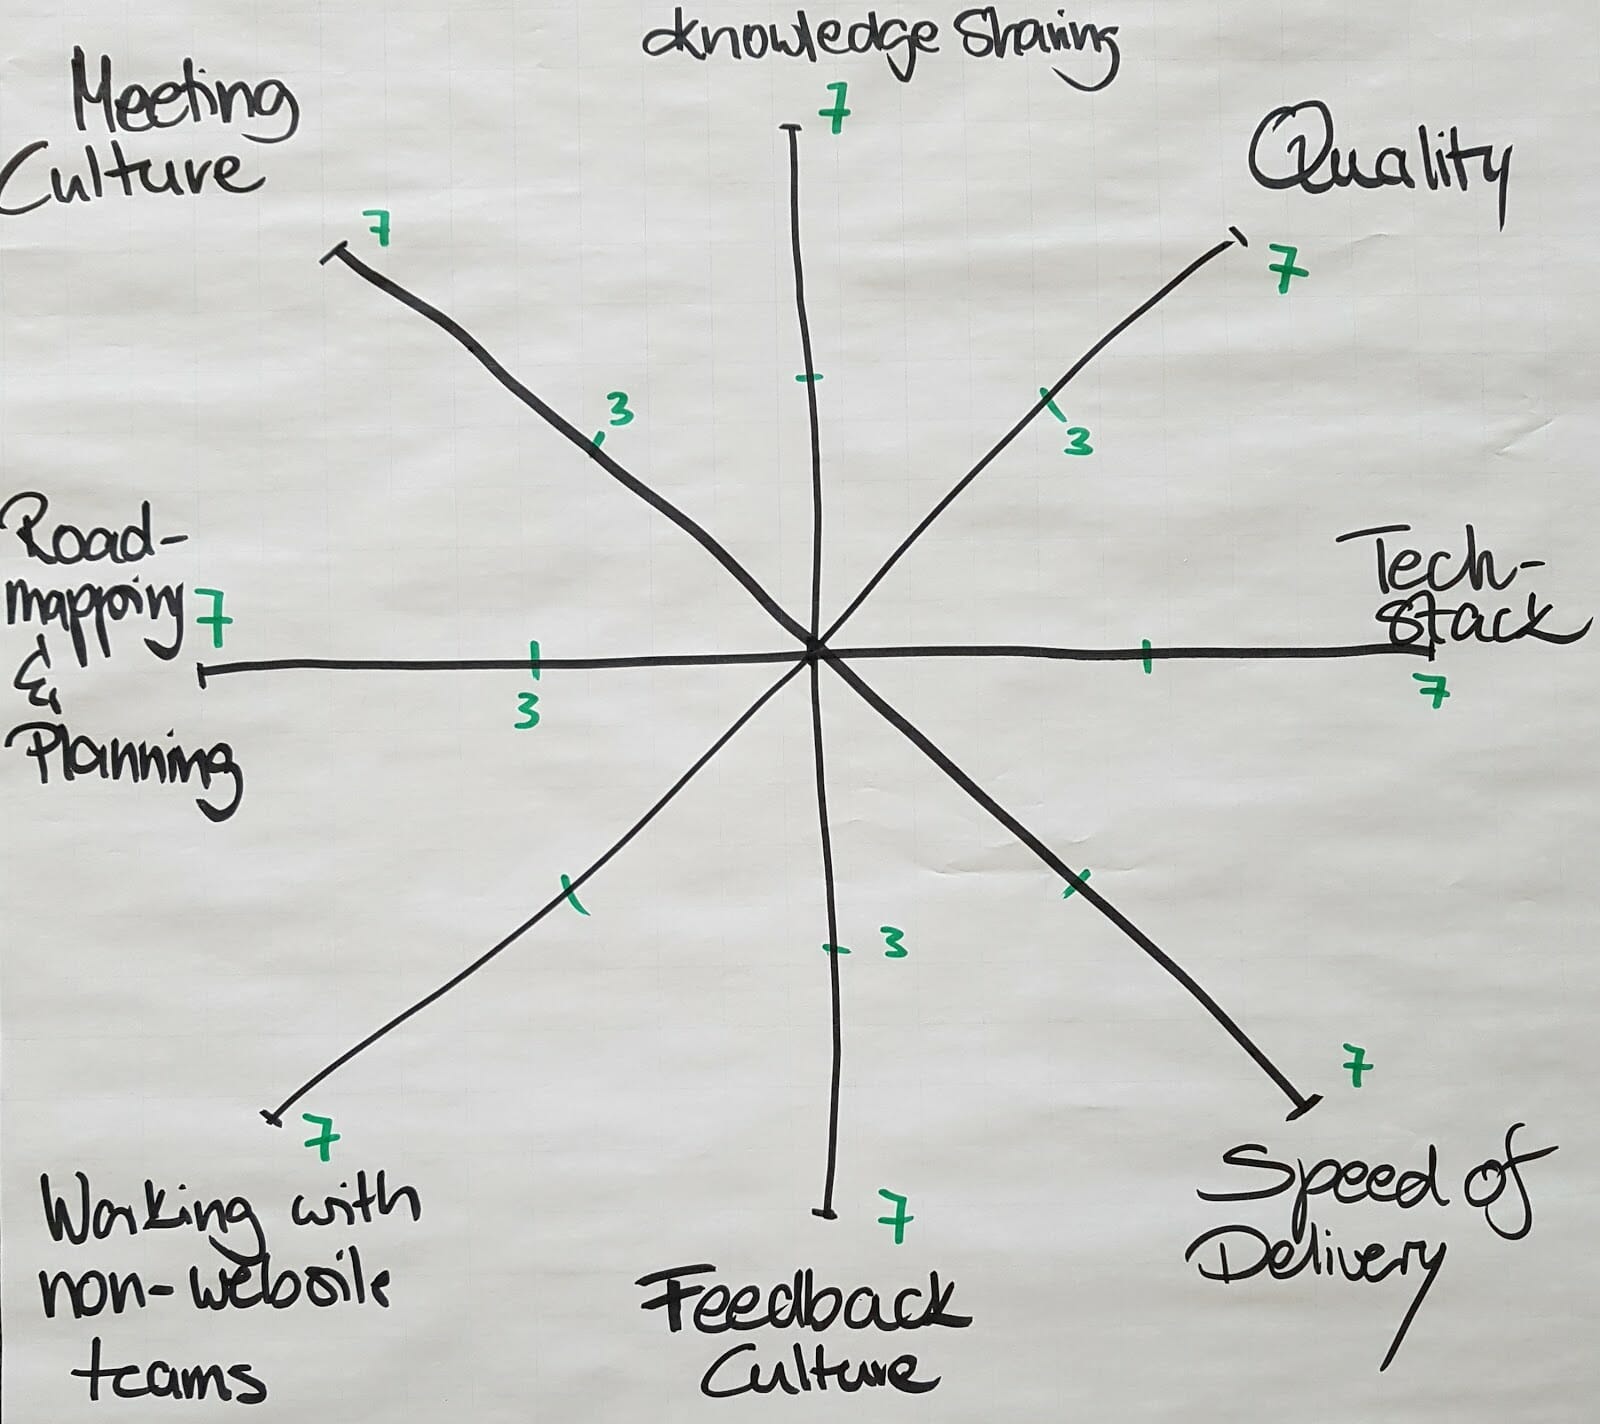 Knowledge Sharing
7
Meeting
Culture
7
3
Quality
7
3
Road-
mapping
&
Planning
7
3
Tech-
stack
7
3
7
7
Working with
non-website
teams
7
Feedback
Culture
7
Speed of
Delivery